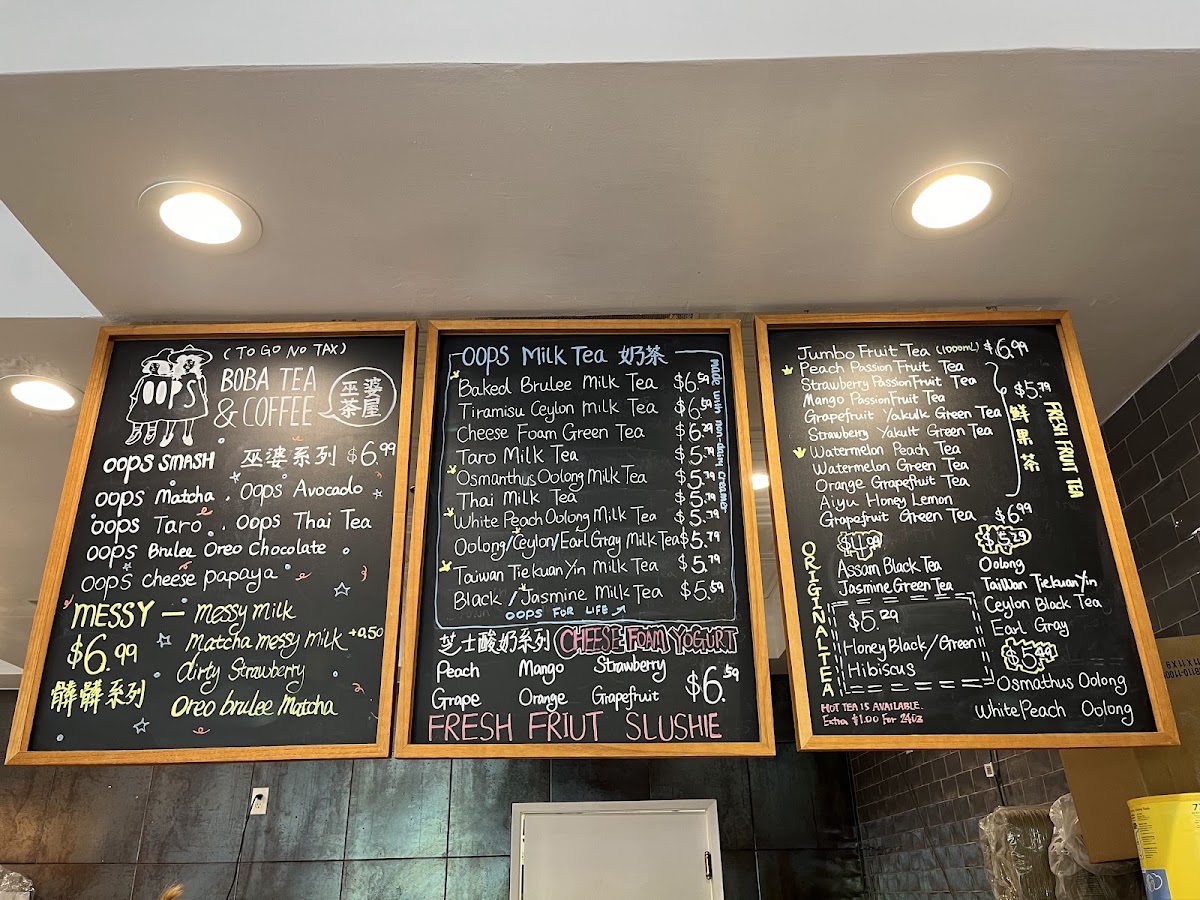 (TO GO NO TAX)
OOPS
BOBA TEA
& COFFEE
巫婆
茶屋
OOPS SMASH 巫婆系列 $6.99
OOPS Matcha . OOPS Avocado
OOPS Taro . OOPS Thai Tea
OOPS Brulee Oreo Chocolate
OOPS cheese papaya
MESSY — Messy Milk
$6.99
Matcha messy milk +0.50
dirty Strawberry
髒髒系列
Oreo brulee Matcha
OOPS Milk Tea 奶茶
made with non-dairy creamer
Baked Brulee Milk Tea $6.59
Tiramisu Ceylon Milk Tea $6.59
Cheese Foam Green Tea $6.29
Taro Milk Tea $5.79
Osmanthus Oolong Milk Tea $5.79
Thai Milk Tea $5.79
White Peach Oolong Milk Tea $5.79
Oolong/Ceylon/Earl Gray Milk Tea $5.79
Taiwan Tiekuan Yin Milk Tea $5.79
Black / Jasmine Milk Tea $5.59
OOPS FOR LIFE
芝士酸奶系列 CHEESE FOAM YOGURT
Peach Mango Strawberry
Grape Orange Grapefruit $6.59
FRESH FRIUT SLUSHIE
Jumbo Fruit Tea (1000mL) $6.99
Peach Passion Fruit Tea
Strawberry Passion Fruit Tea
Mango Passion Fruit Tea
Grapefruit Yakulk Green Tea
Strawberry Yakult Green Tea
Watermelon Peach Tea
Watermelon Green Tea
Orange Grapefruit Tea
Aiyu Honey Lemon
Grapefruit Green Tea
$5.79
鮮果茶
FRESH FRUIT TEA
$6.99
ORIGINAL TEA
Assam Black Tea
Jasmine Green Tea
$5.29
Honey Black/Green
Hibiscus
HOT TEA IS AVAILABLE.
Extra $1.00 For 24oz
$5.29
Oolong
Taiwan Tiekuan Yin
Ceylon Black Tea
Earl Gray
Osmathus Oolong
White Peach Oolong